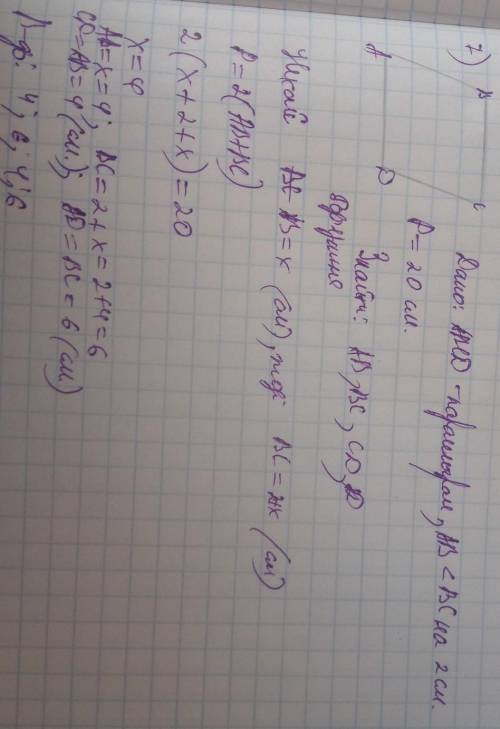 7)
A
B
C
D
Дано: ABCD - паралелограм, AB < BC на 2 см.
P = 20 см.
Знайти: AB, BC, CD, AD
Нехай AB = x (см), тоді BC = 2+x (см)
P = 2(AB+BC)
2(x+2+x) = 20
x = 4
AB = x = 4; BC = 2+x = 2+4 = 6
CD = AB = 4 (см); AD = BC = 6 (см)
В-дь: 4; 6; 4; 6